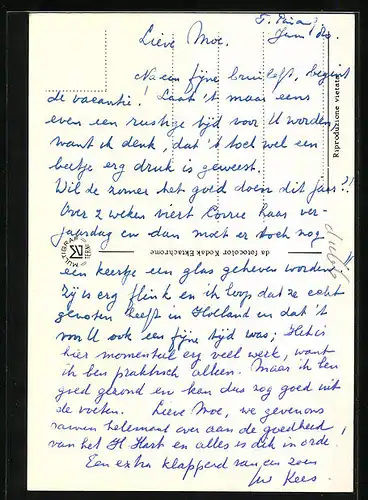 Juni '80
Lieve Moe.
Na een fijne bruiloft, begint
de vacantie! Laat 't maar eens
even een rustige tijd voor U worden,
want ik denk, dat 't toch wel een
beetje erg druk is geweest.
Wil de zomer het goed doen dit jaar?!
Over 2 weken viert Corrie haar ver-
jaardag en dan moet er toch nog
een keertje een glas geheven worden
Zij is erg flink en ik hoop dat ze echt
genoten heeft in Holland en dat 't
voor U ook een fijne tijd was; Het is
hier momenteel erg veel werk, want
ik ben praktisch alleen. Maar ik ben
goed gezond en kan dus nog goed uit
de voeten. Lieve Moe, we geven ons
samen helemaal over aan de goedheid
van het H Hart en alles is dik in orde.
Een extra klapperd van een zoen
Uw Kees.
Riproduzione vietata
da fotocolor Kodak Ektachrome
MULTIGRAF
TERNI